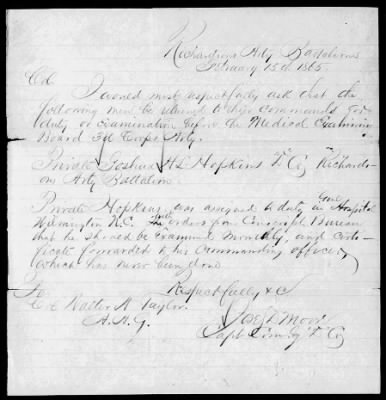 Richardsons Arty Battalion
February 15th 1865
Col
I would most respectfully ask that the
following men be returned to their commands for
duty or examination before the Medical Examining
Board 3d Corps Arty.
Private Joshua H L Hopkins "D" Co Richards-
ons Arty Battalion
Private Hopkins was assigned to duty in Genl Hospital
Wilmington N.C. with orders from Conscript Bureau
that he should be examined monthly, and certi-
ficate forwarded to his Commanding officer,
which has never been done
Respectfully &c
To
Col Walter H Taylor
A. A. G.
Moore
Capt Comdg "D" Co